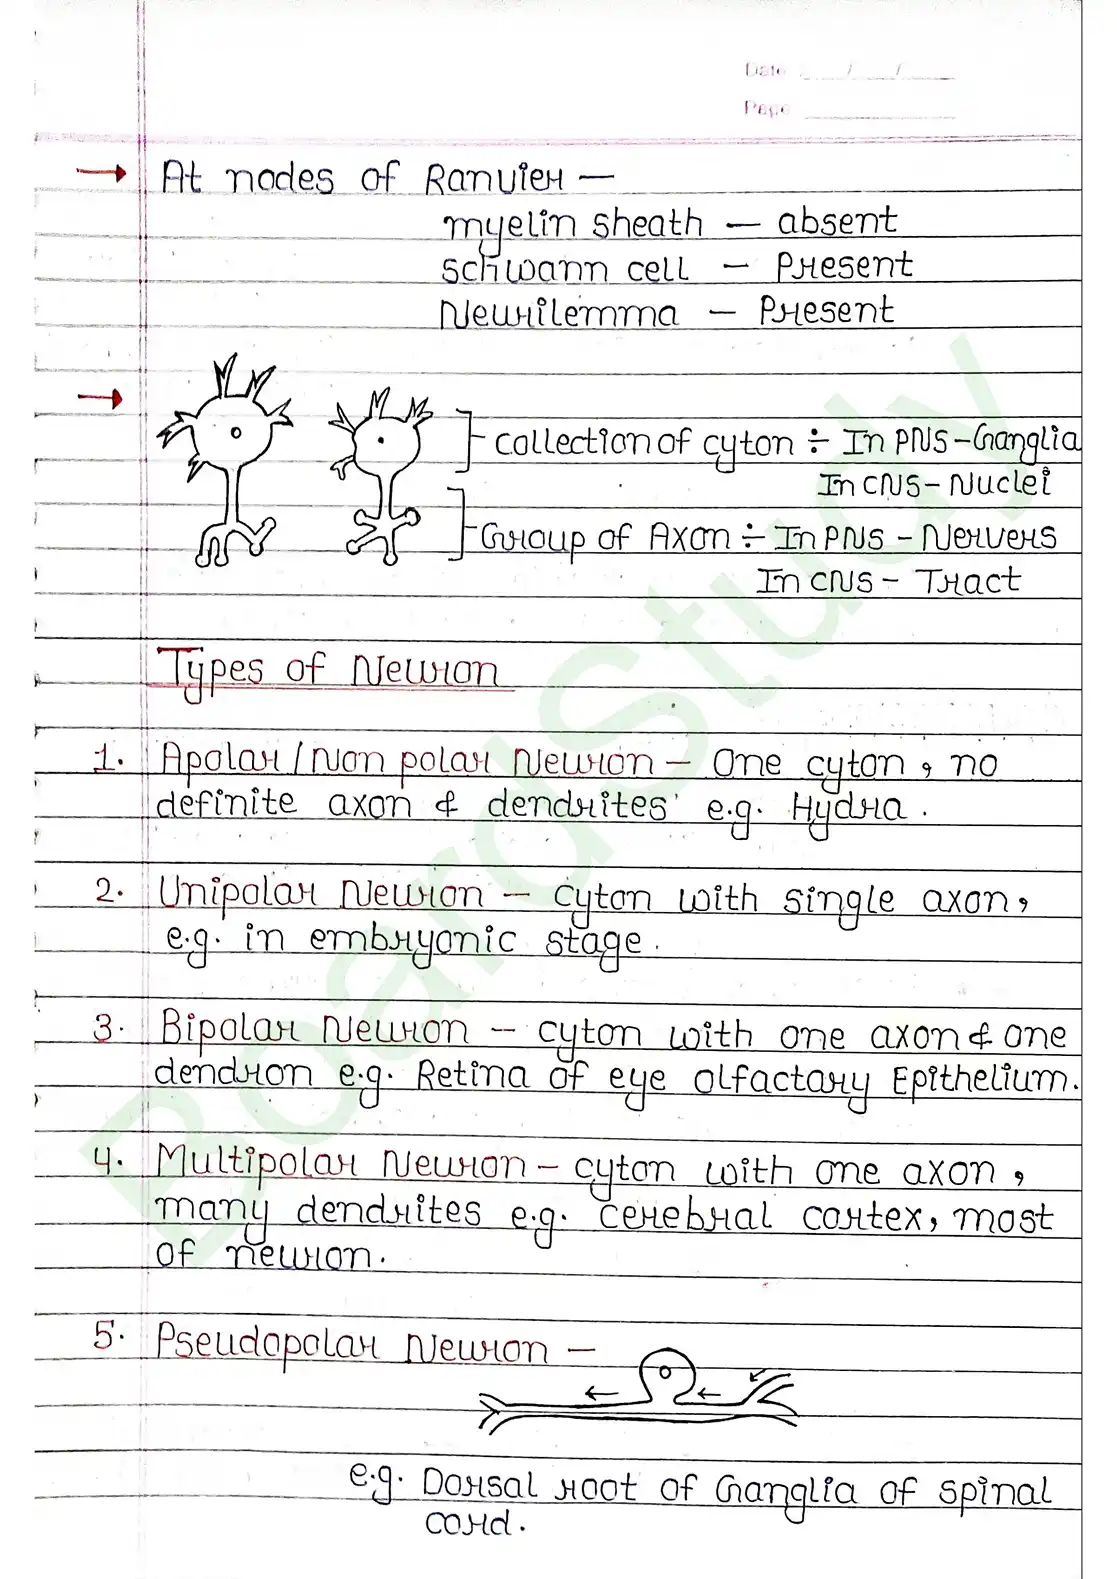 Date ___/___/___
Page
→ At nodes of Ranvier —
myelin sheath — absent
schwann cell — Present
Neurilemma — Present
→ collection of cyton ÷ In PNS - Ganglia
In CNS - Nuclei
Group of Axon ÷ In PNS - Nervers
In CNS - Tract
Types of Neuron
1. Apolar / Non polar Neuron — One cyton, no
definite axon & dendrites e.g. Hydra.
2. Unipolar Neuron — Cyton with single axon,
e.g. in embryonic stage.
3. Bipolar Neuron — cyton with one axon & one
dendron e.g. Retina of eye olfactory Epithelium.
4. Multipolar Neuron — cyton with one axon,
many dendrites e.g. cerebral cortex, most
of neuron.
5. Pseudopolar Neuron —
e.g. Dorsal root of Ganglia of spinal
cord.
BoardStudy